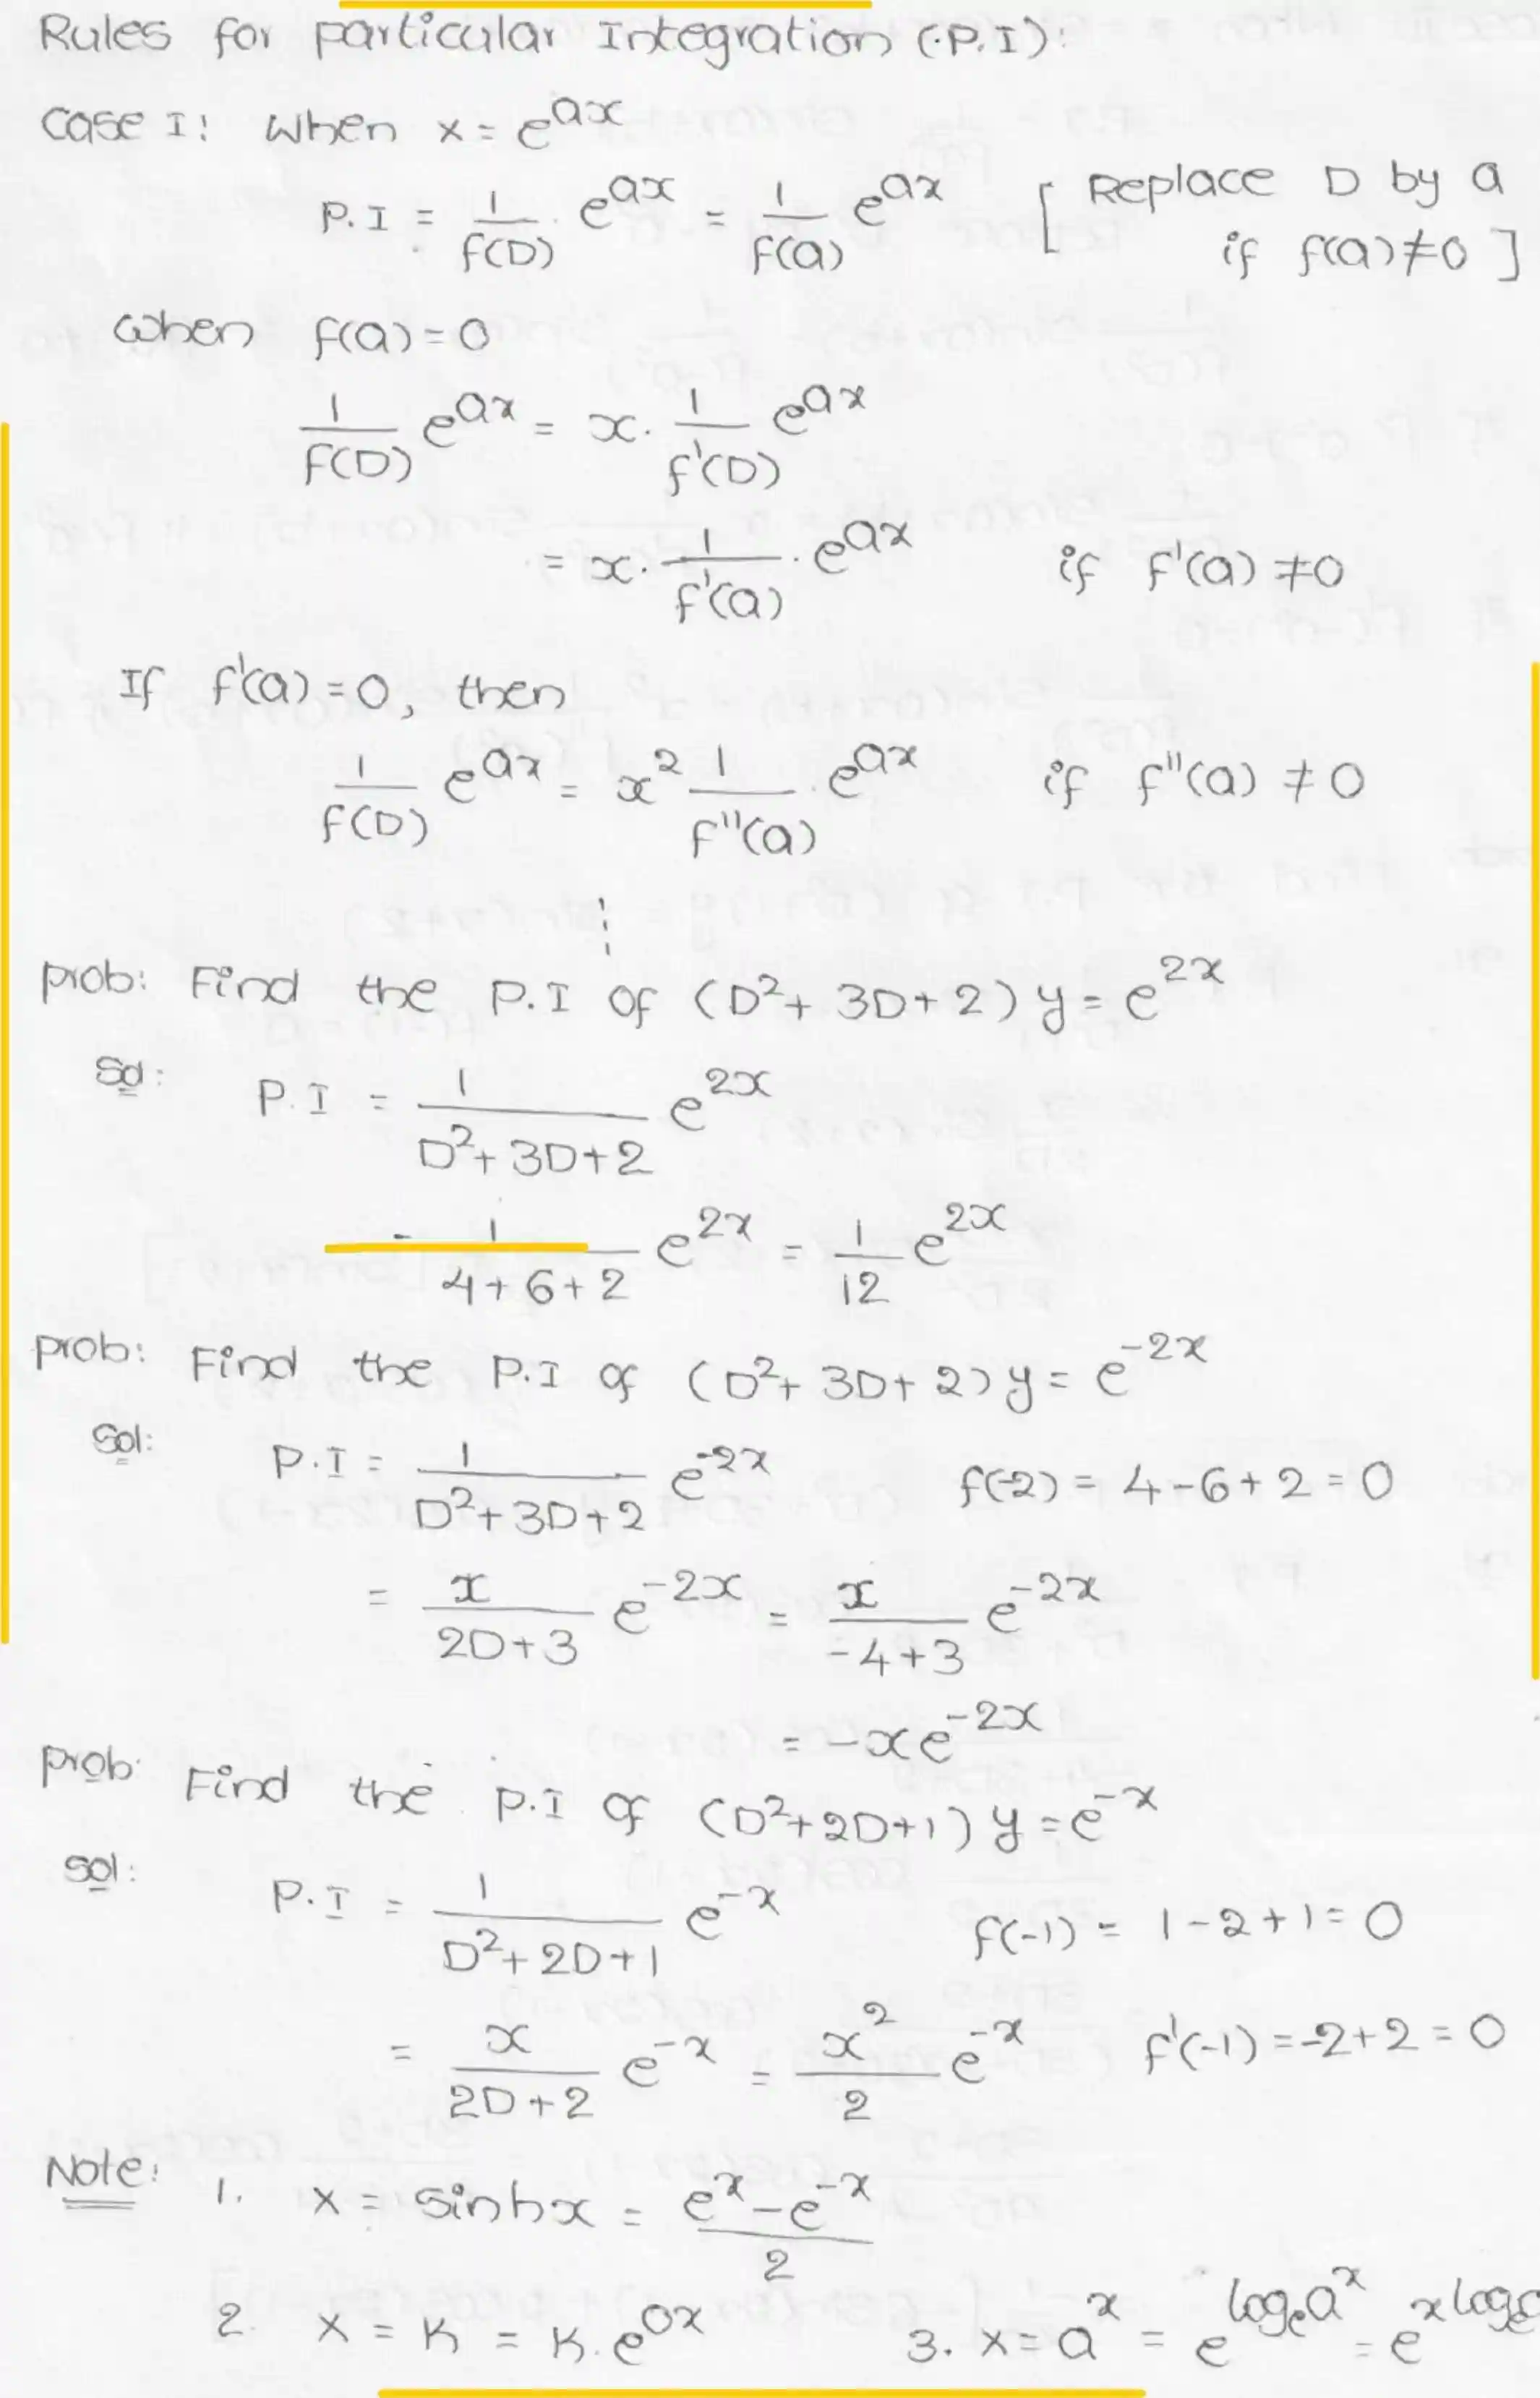 Rules for particular Integration (P.I):
Case I: When x = e^{ax}
P.I = \frac{1}{f(D)} e^{ax} = \frac{1}{f(a)} e^{ax} [Replace D by a if f(a) ≠ 0]
When f(a) = 0
\frac{1}{f(D)} e^{ax} = x. \frac{1}{f'(D)} e^{ax}
= x. \frac{1}{f'(a)} . e^{ax} if f'(a) ≠ 0
If f'(a) = 0, then
\frac{1}{f(D)} e^{ax} = x^2 \frac{1}{f''(a)} . e^{ax} if f''(a) ≠ 0
⋮
Prob: Find the P.I of (D^2 + 3D + 2) y = e^{2x}
Sol: P.I = \frac{1}{D^2 + 3D + 2} e^{2x}
= \frac{1}{4 + 6 + 2} e^{2x} = \frac{1}{12} e^{2x}
Prob: Find the P.I of (D^2 + 3D + 2) y = e^{-2x}
Sol: P.I = \frac{1}{D^2 + 3D + 2} e^{-2x} f(-2) = 4 - 6 + 2 = 0
= \frac{x}{2D + 3} e^{-2x} = \frac{x}{-4 + 3} e^{-2x}
= -x e^{-2x}
Prob: Find the P.I of (D^2 + 2D + 1) y = e^{-x}
Sol: P.I = \frac{1}{D^2 + 2D + 1} e^{-x} f(-1) = 1 - 2 + 1 = 0
= \frac{x}{2D + 2} e^{-x} = \frac{x^2}{2} e^{-x} f'(-1) = -2 + 2 = 0
Note: 1. X = sinhx = \frac{e^x - e^{-x}}{2}
2. X = K = K. e^{0x} 3. X = a^x = e^{log_e a^x} = e^{x log_e a}